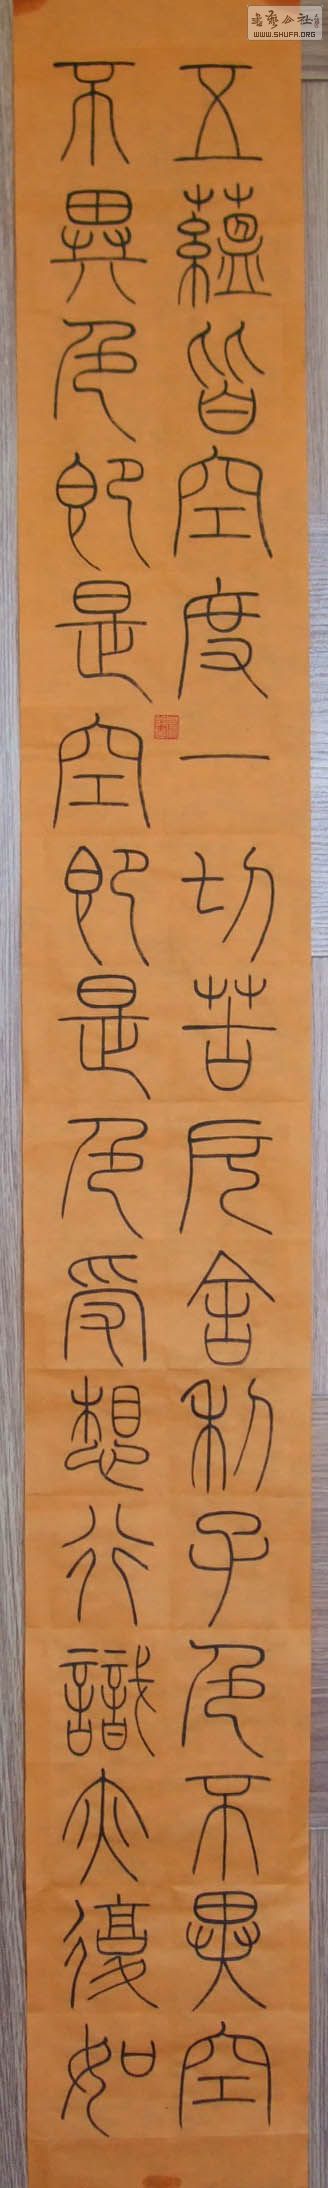 五蘊皆空度一切苦厄舍利子色不異空
不異色即是空即是色受想行識亦復如
书藝公社
WWW.SHUFA.ORG